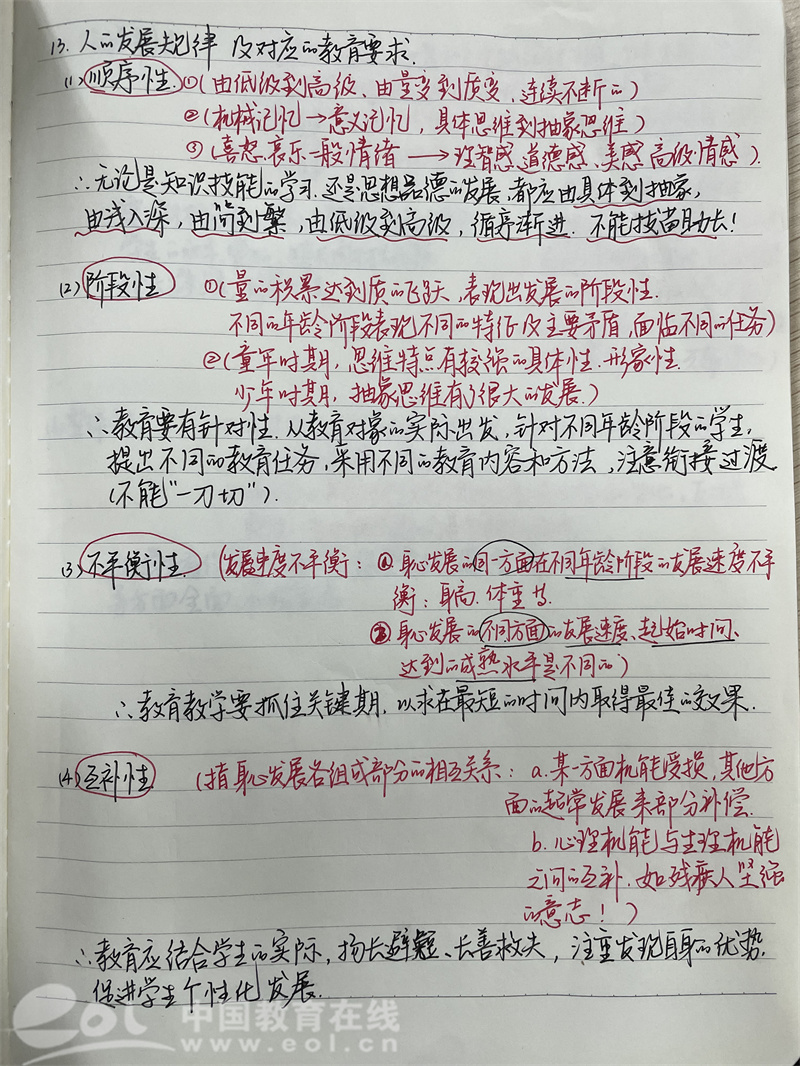 13. 人的发展规律 及对应的教育要求.
(1) 顺序性. ①(由低级到高级、由量变到质变、连续不断的)
②(机械记忆→意义记忆, 具体思维到抽象思维)
③(喜怒哀乐一般情绪 → 理智感.道德感、美感 高级情感).
∴无论是知识技能的学习.还是思想品德的发展.都应由具体到抽象,
由浅入深, 由简到繁, 由低级到高级, 循序渐进. 不能拔苗助长!
(2) 阶段性 ①(量的积累达到质的飞跃, 表现出发展的阶段性.
不同的年龄阶段表现不同的特征及主要矛盾,面临不同的任务)
②(童年时期, 思维特点有较强的具体性.形象性.
少年时期, 抽象思维有了很大的发展.)
∴教育要有针对性. 从教育对象的实际出发, 针对不同年龄阶段的学生,
提出不同的教育任务, 采用不同的教育内容和方法, 注意衔接过渡
(不能"一刀切").
(3) 不平衡性. (发展速度不平衡: ⓐ 身心发展的同一方面在不同年龄阶段的发展速度不平
衡: 身高.体重等.
ⓑ 身心发展的不同方面的发展速度、起始时间、
达到的成熟水平是不同的)
∴教育教学要抓住关键期. 以求在最短的时间内取得最佳的效果.
(4) 互补性 (指身心发展各组成部分的相互关系: a.某一方面机能受损, 其他方
面的超常发展来部分补偿.
b.心理机能与生理机能
之间的互补.如残疾人坚强
的意志!)
∴教育应结合学生的实际, 扬长避短、长善救失, 注重发现自身的优势,
促进学生个性化发展.
eol 中国教育在线
www.eol.cn